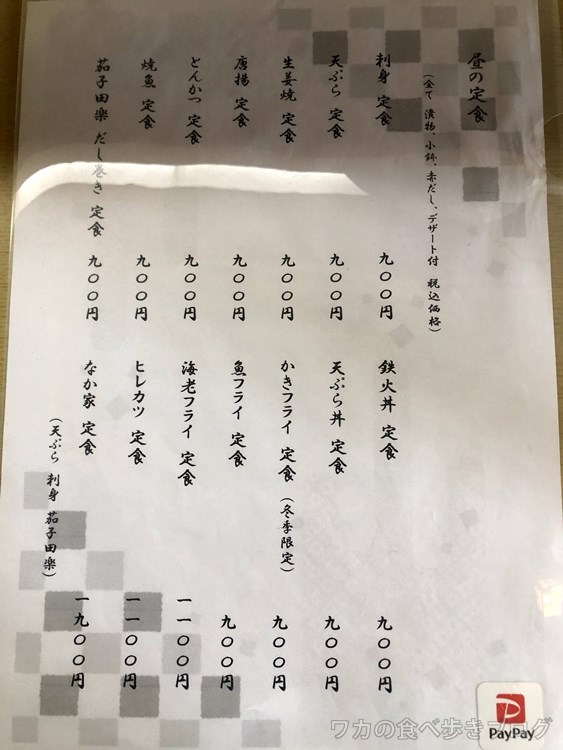 昼の定食
（全て 漬物、小鉢、赤だし、デザート付 税込価格）
刺身 定食 九〇〇円
天ぷら 定食 九〇〇円
生姜焼 定食 九〇〇円
唐揚 定食 九〇〇円
とんかつ 定食 九〇〇円
焼魚 定食 九〇〇円
茄子田楽 だし巻き 定食 九〇〇円
鉄火丼 定食 九〇〇円
天ぷら丼 定食 九〇〇円
かきフライ 定食（冬季限定） 九〇〇円
魚フライ 定食 九〇〇円
海老フライ 定食 一一〇〇円
ヒレカツ 定食 一一〇〇円
なか家 定食 一九〇〇円
（天ぷら 刺身 茄子田楽）
PayPay
ワカの食べ歩きブログ